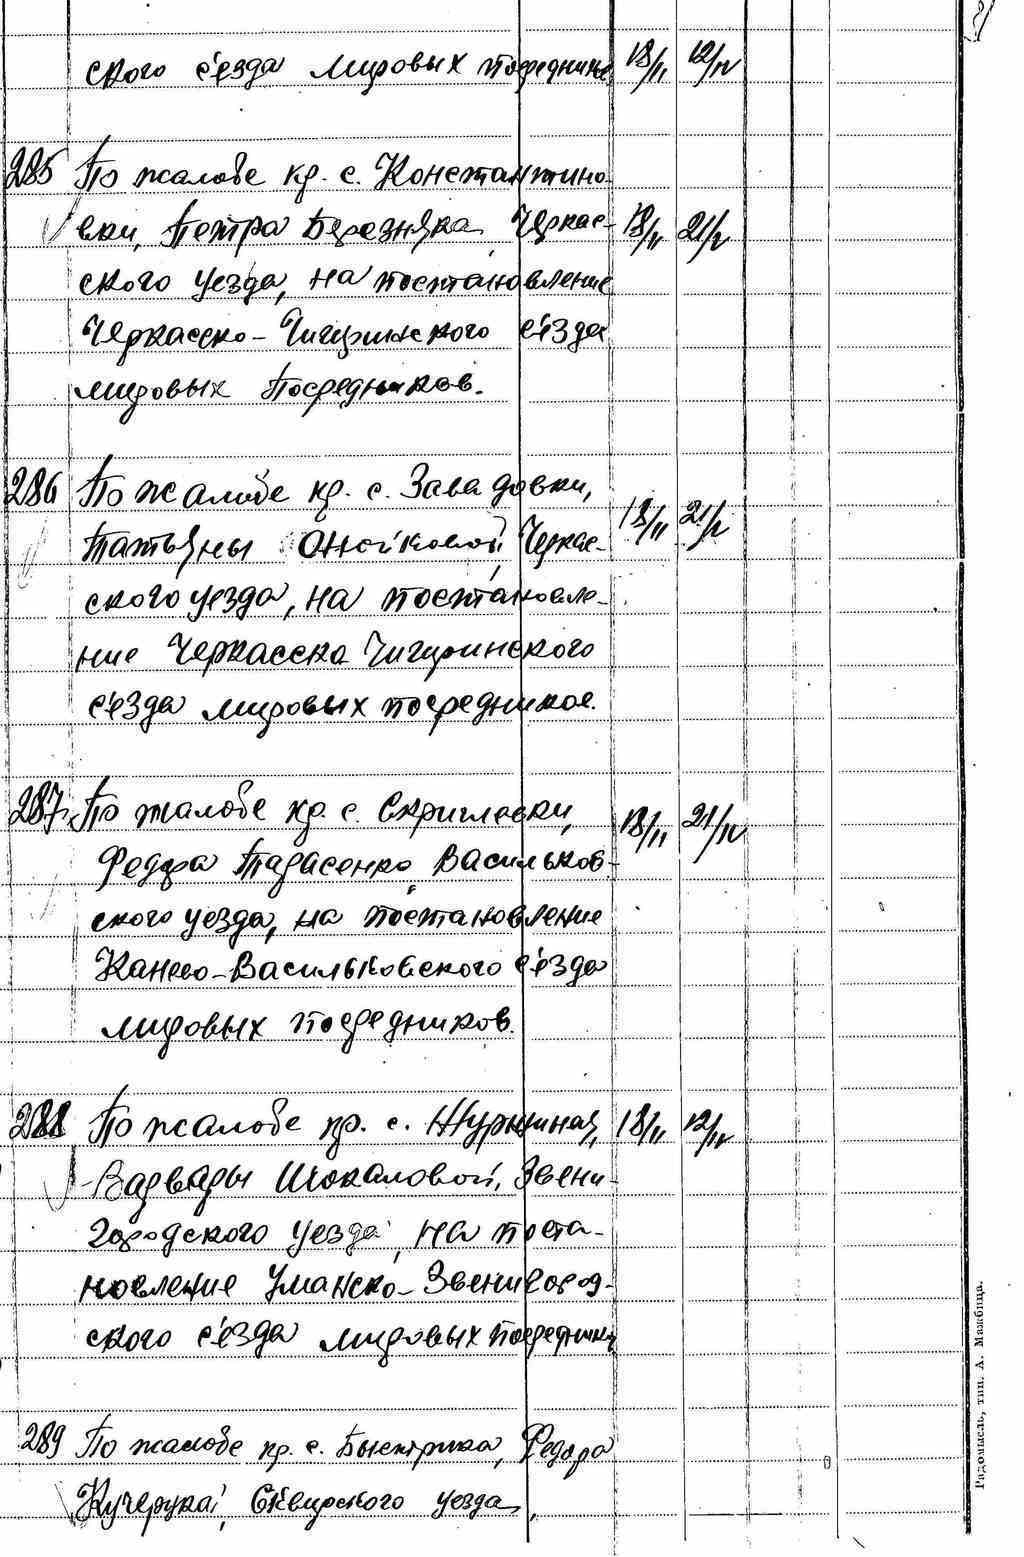 ского с'езда мировых посредников 18/II 12/IV
285 По жалобе кр. с. Константино-
вки, Петра Березняка, Черкас- 18/II 21/V
ского уезда, на постановление
Черкасско-Чигиринского с'езда
мировых посредников.
286 По жалобе кр. с. Завадовки,
Татьяны Черкас- 18/II 21/V
ского уезда, на постановле-
ние Черкасско Чигиринского
с'езда мировых посредников.
287 По жалобе кр. с. Скриглевки,
Федора Тарасенко, Васильков- 18/II 21/IV
ского уезда, на постановление
Канево-Васильковского с'езда
мировых посредников.
288 По жалобе кр. с. 18/II 12/IV
Варвары Шокаловой, Звени-
городского уезда, на поста-
новление Уманско-Звенигород-
ского с'езда мировых посредников
289 По жалобе кр. с. Быстрика, Федора
Кучерука, Сквирского уезда,
Радомысль, тип. А. Мажбица.